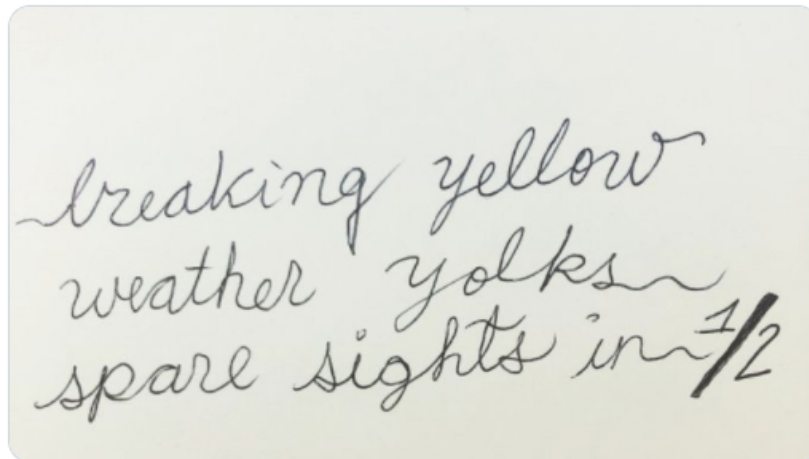 breaking yellow
weather yolks
spare sights in 1/2